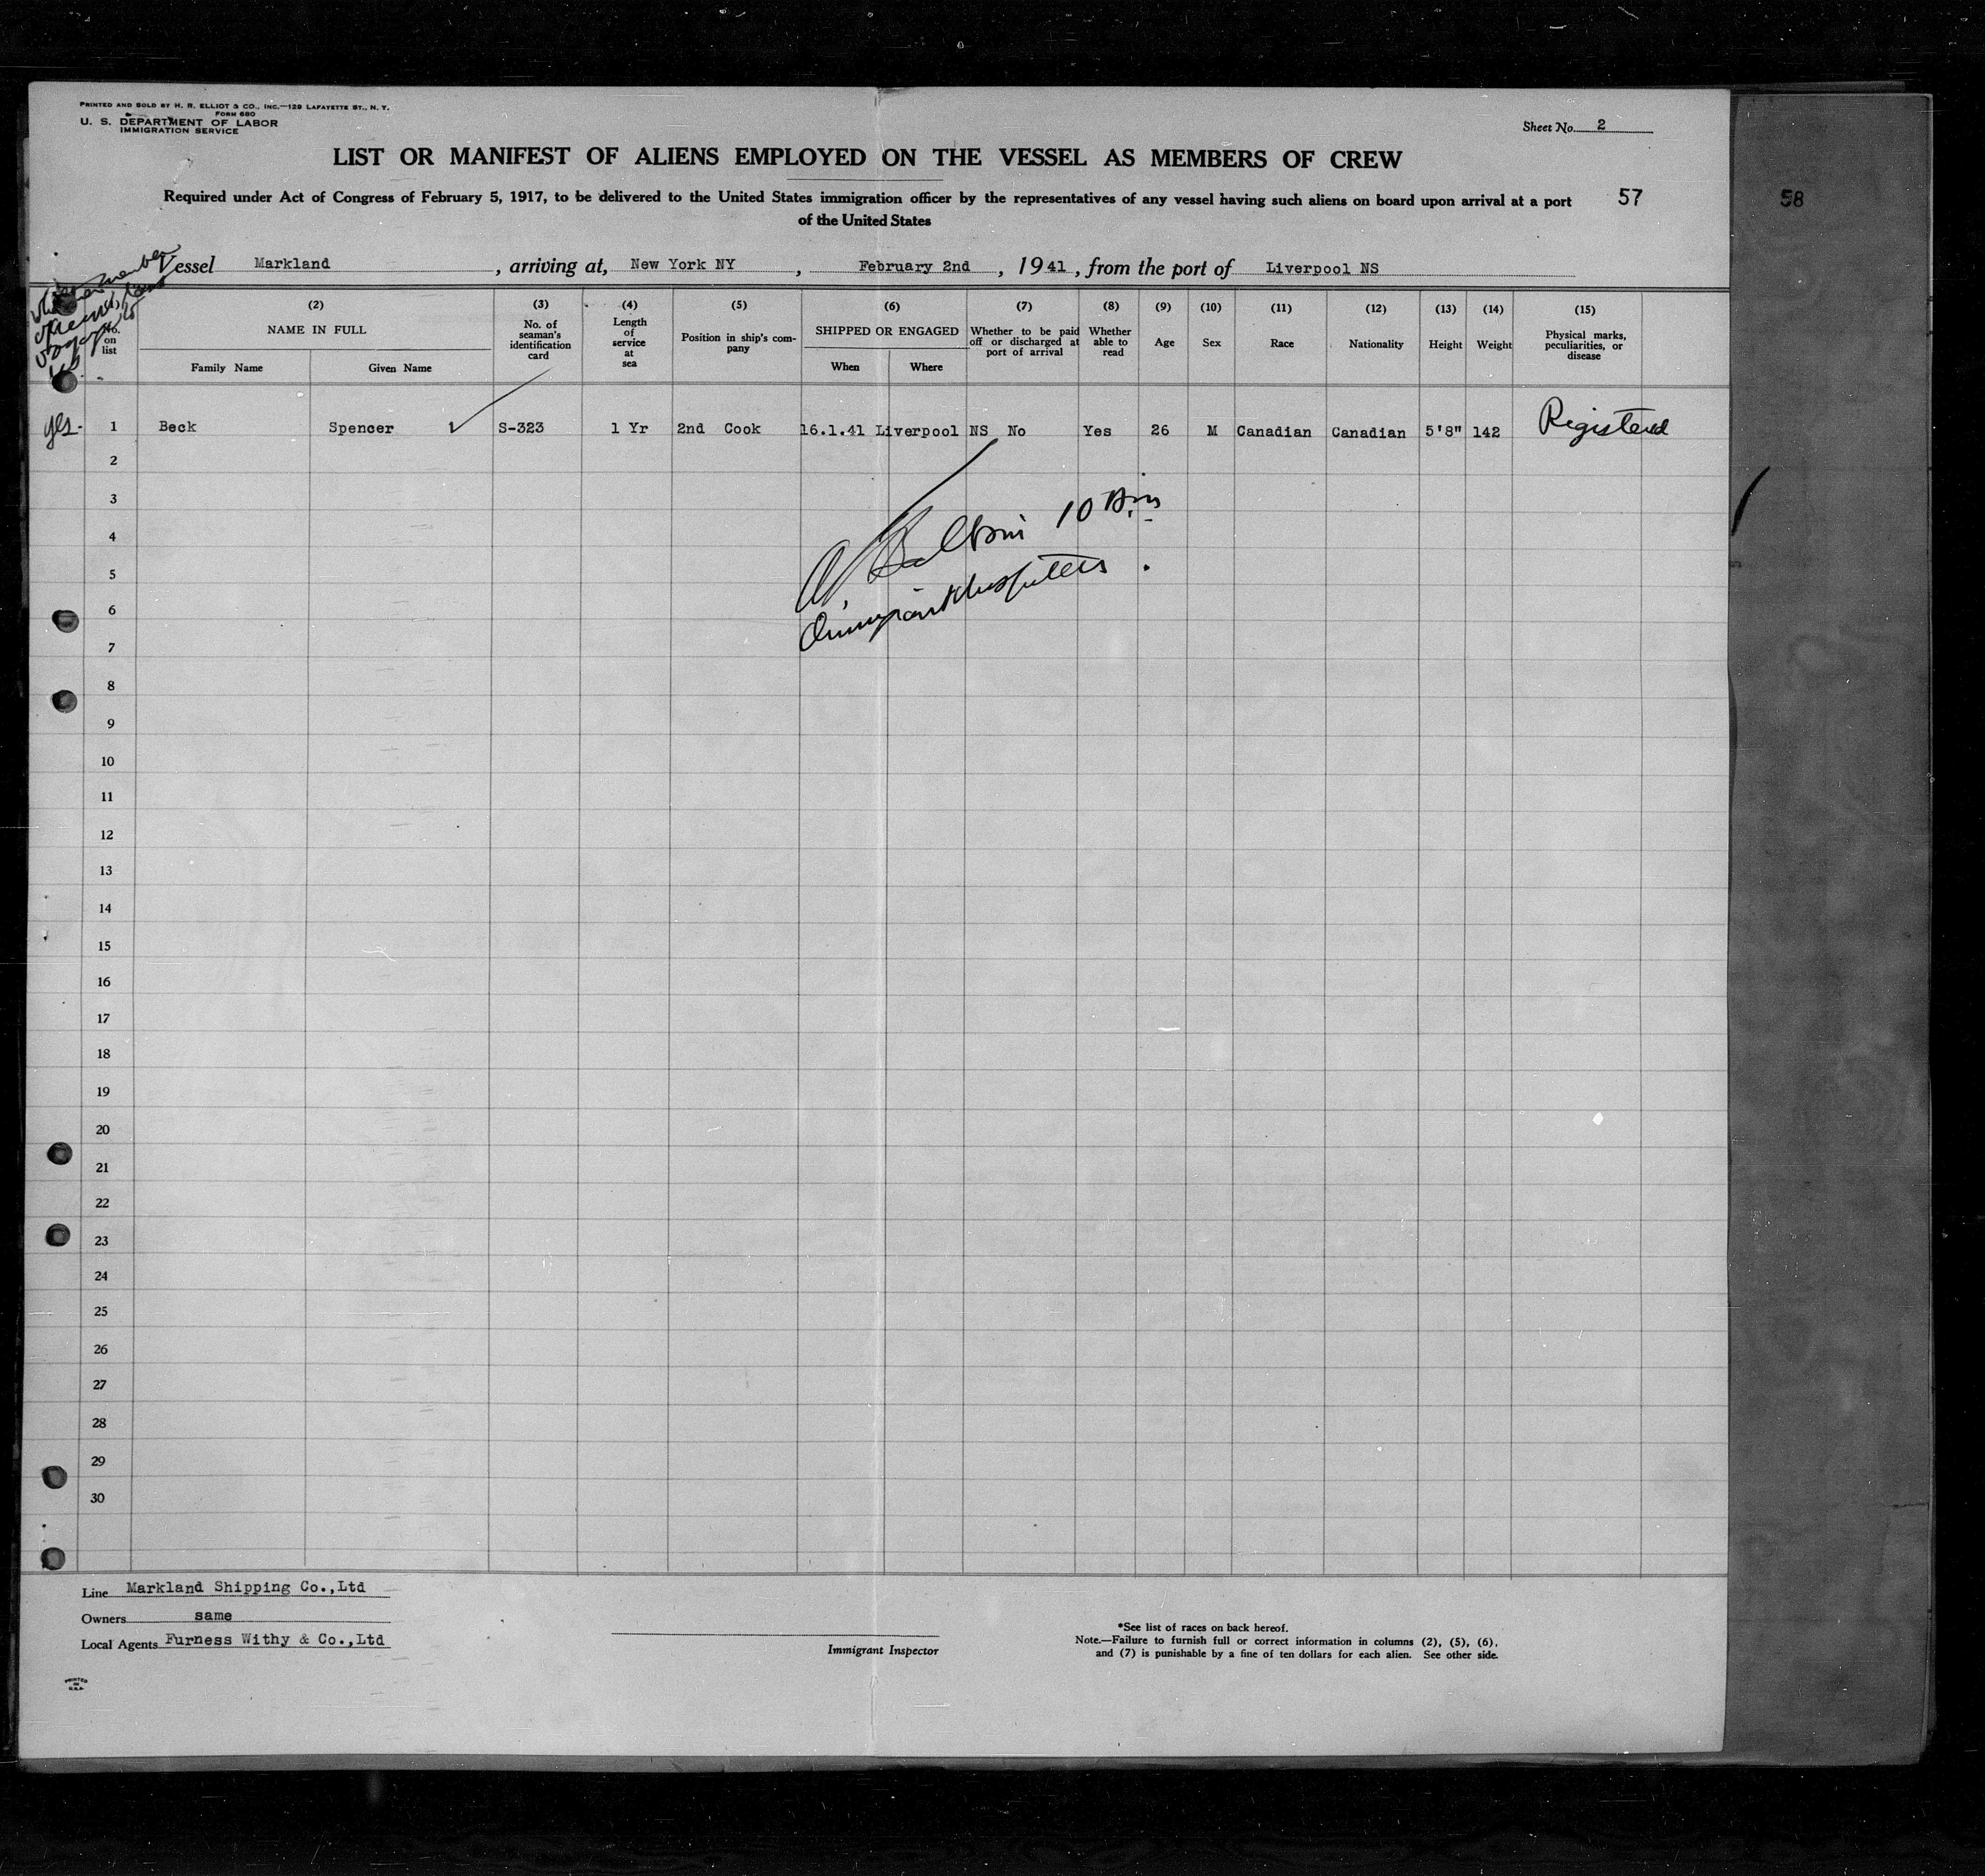 PRINTED AND SOLD BY H. R. ELLIOT & CO., INC.—129 LAFAYETTE ST., N. Y.
FORM 680
U. S. DEPARTMENT OF LABOR
IMMIGRATION SERVICE
Sheet No. 2
LIST OR MANIFEST OF ALIENS EMPLOYED ON THE VESSEL AS MEMBERS OF CREW
Required under Act of Congress of February 5, 1917, to be delivered to the United States immigration officer by the representatives of any vessel having such aliens on board upon arrival at a port
of the United States
57
58
Vessel Markland, arriving at, New York NY, February 2nd, 1941, from the port of Liverpool NS
No. on list
(2) NAME IN FULL
Family Name
Given Name
(3) No. of seaman's identification card
(4) Length of service at sea
(5) Position in ship's company
(6) SHIPPED OR ENGAGED
When
Where
(7) Whether to be paid off or discharged at port of arrival
(8) Whether able to read
(9) Age
(10) Sex
(11) Race
(12) Nationality
(13) Height
(14) Weight
(15) Physical marks, peculiarities, or disease
yes. 1 Beck Spencer S-323 1 Yr 2nd Cook 16.1.41 Liverpool NS No Yes 26 M Canadian Canadian 5'8" 142 Registered
2
3
4
5
6
7
8
9
10
11
12
13
14
15
16
17
18
19
20
21
22
23
24
25
26
27
28
29
30
Line Markland Shipping Co.,Ltd
Owners same
Local Agents Furness Withy & Co.,Ltd
Immigrant Inspector
*See list of races on back hereof.
Note.—Failure to furnish full or correct information in columns (2), (5), (6),
and (7) is punishable by a fine of ten dollars for each alien. See other side.
PRINTED
IN
U.S.A.